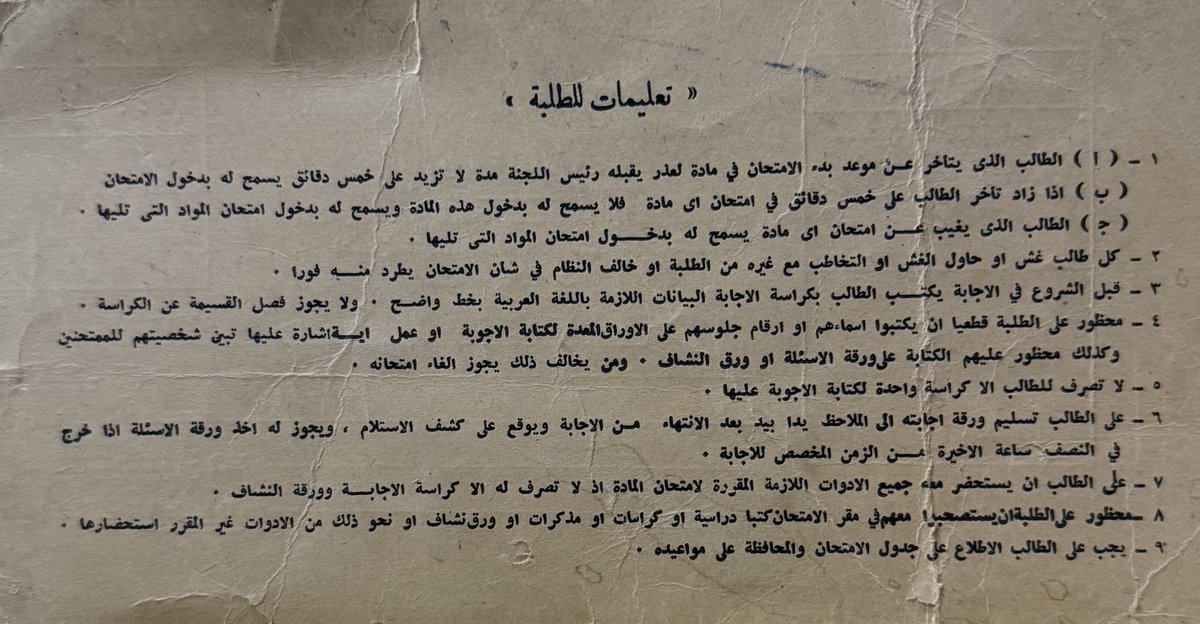 « تعليمات للطلبة »
١ ـ ( ا ) الطالب الذى يتاخر عـن موعد بدء الامتحان في مادة لعذر يقبله رئيس اللجنة مدة لا تزيد على خمس دقائق يسمح له بدخول الامتحان
( ب ) اذا زاد تأخر الطالب على خمس دقائق في امتحان اى مادة فلا يسمح له بدخول هذه المادة ويسمح له بدخول امتحان المواد التى تليها ٠
( ج ) الطالب الذى يغيب عـن امتحان اى مادة يسمح له بدخـــول امتحان المواد التى تليها ٠
٢ ـ كل طالب غش او حاول الغش او التخاطب مع غيره من الطلبة او خالف النظام في شان الامتحان يطرد منــه فورا ٠
٣ ـ قبل الشروع في الاجابة يكتـب الطالب بكراسة الاجابة البيانات اللازمة باللغة العربية بخط واضـح ٠ ولا يجوز فصل القسيمة عن الكراسة ٠
٤ ـ محظور على الطلبة قطعيا ان يكتبوا اسماءهم او ارقام جلوسهم على الاوراق المعدة لكتابة الاجوبة او عمل ايـة اشارة عليها تبين شخصيتهم للممتحنين
وكذلك محظور عليهم الكتابة على ورقة الاسئلة او ورق النشاف ٠ ومن يخالف ذلك يجوز الغاء امتحانه ٠
٥ ـ لا تصرف للطالب الا كراسة واحدة لكتابة الاجوبة عليها ٠
٦ ـ على الطالب تسليم ورقة اجابته الى الملاحظ يدا بيد بعد الانتهاء مـن الاجابة ويوقع على كشف الاستلام ، ويجوز له اخذ ورقة الاسئلة اذا خرج
في النصف ساعة الاخيرة مـن الزمن المخصص للاجابة ٠
٧ ـ على الطالب ان يستحضر معه جميع الادوات اللازمة المقررة لامتحان المادة اذ لا تصرف له الا كراسة الاجابـة وورقة النشاف ٠
٨ ـ محظور على الطلبة ان يستصحبوا معهم في مقر الامتحان كتبا دراسية او كراسات او مذكرات او ورق نشاف او نحو ذلك من الادوات غير المقرر استحضارها ٠
٩ ـ يجب على الطالب الاطلاع على جدول الامتحان والمحافظة على مواعيده ٠